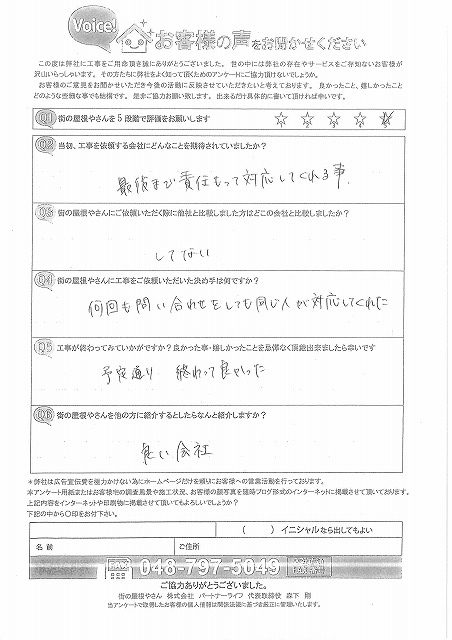 Voice!
お客様の声をお聞かせください
この度は弊社に工事をご用命頂き誠にありがとうございました。世の中には弊社の存在やサービスをご存知ないお客様が
沢山いらっしゃいます。その方たちに弊社をよく知って頂くためのアンケートにご協力頂けないでしょうか。
お客様のご意見をお聞かせいただき今後の活動に反映させていただきたいと考えております。良かったこと、嬉しかったこと
どのような些細な事でも結構です。是非ご協力お願い致します。出来るだけ具体的に書いて頂ければ幸いです。
Q1 街の屋根やさんを5段階で評価をお願いします ☆ ☆ ☆ ☆ ☆
Q2 当初、工事を依頼する会社にどんなことを期待されていましたか?
最後まで責任もって対応してくれる事
Q3 街の屋根やさんにご依頼いただく際に他社と比較しました方はどこの会社と比較しましたか?
してない
Q4 街の屋根やさんに工事をご依頼いただいた決め手は何ですか?
何回も問い合わせをしても同じ人が対応してくれた
Q5 工事が終わってみていかがですか?良かった事・嬉しかったことを忌憚なく頂戴出来ましたら幸いです
予定通り 終わって良かった
Q6 街の屋根やさんを他の方に紹介するとしたらなんと紹介しますか?
良い会社
*弊社は広告宣伝費を極力かけない為にホームページだけを頼りにお客様への営業活動を行っております。
本アンケート用紙またはお客様宅の調査風景や施工状況、お客様の顔写真を随時ブログ形式のインターネットに掲載させて頂いております。
上記内容をインターネットや印刷物に掲載させて頂いてもよろしいでしょうか?
下記の中から〇印をお付下さい。
( ) イニシャルなら出してもよい
名前 ご住所
048-797-5049
ご協力ありがとうございました。
街の屋根やさん 株式会社 パートナーライフ 代表取締役 森下 剛
当アンケートで取得したお客様の個人情報は関係法規に基づき厳正に管理いたします。